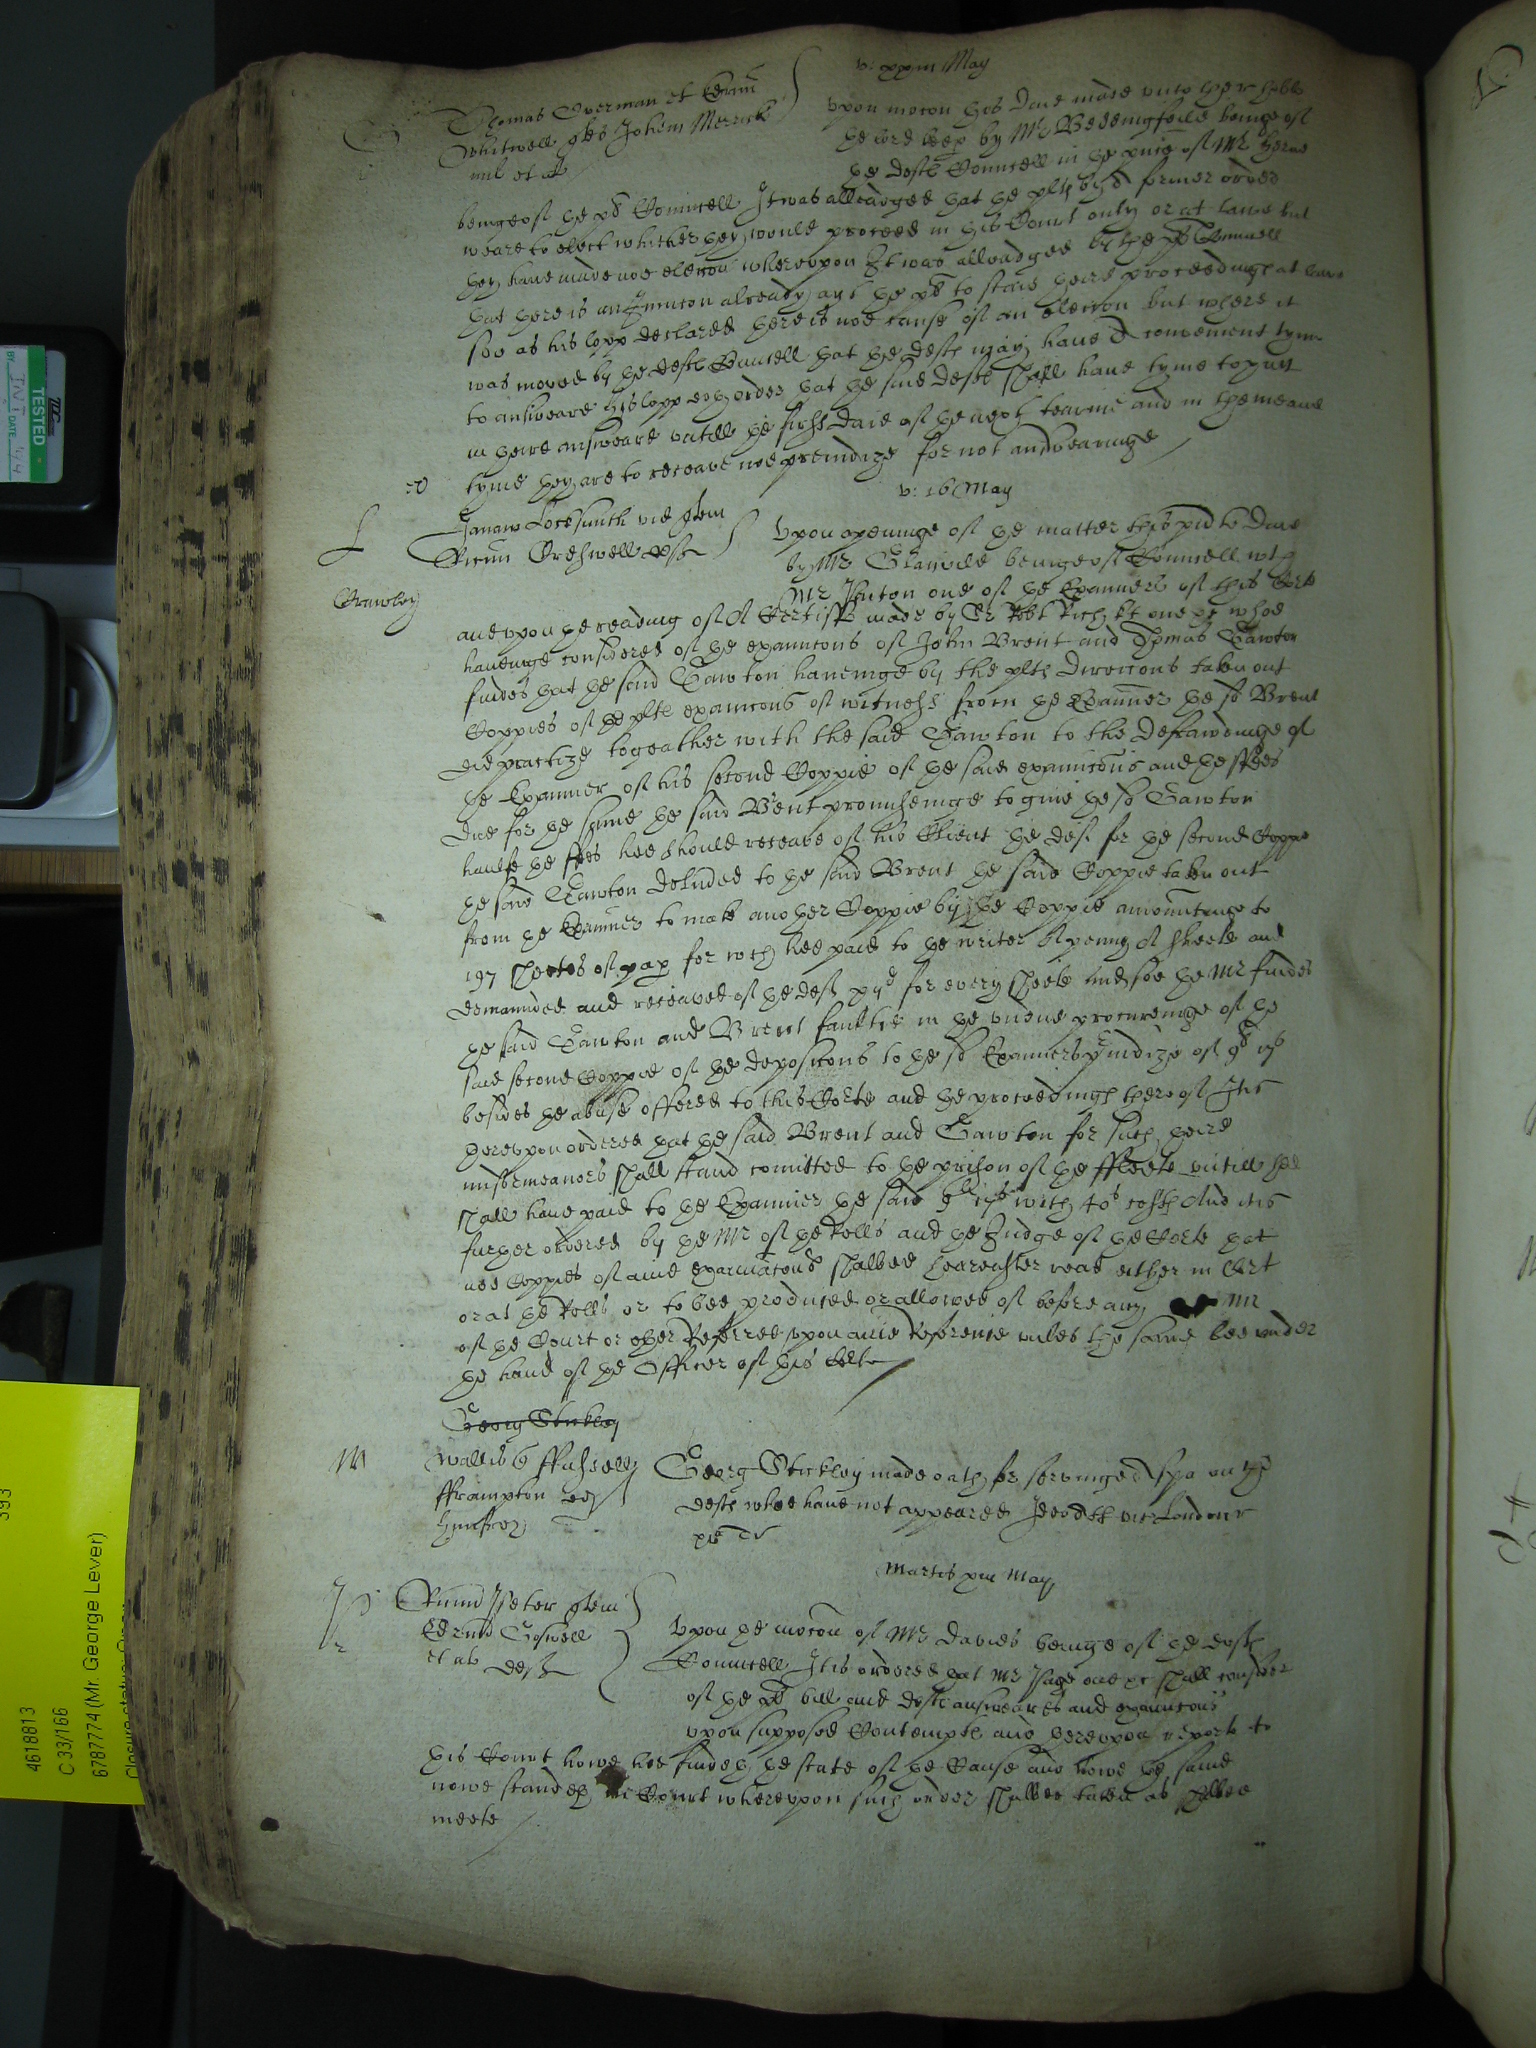 v: xxiii May
Thomas Overman et Edrum
Whitwell qts Johem Merrick
mil et al
Upon mocon this daie made unto the r: hoble
the lord keep by Mr Bedengfeild beinge of
the defts Councell in the pnce of Mr Herne
beinge of the pls Councell It was alleadged that the plts by a former order
weare to elect whither they would proceed in this Court only or at lawe but
they have made noe eleccon whereupon It was alleadged by the pls Councell
that there is an Iniuncon already agt the pls to staie theire proceedings at lawe
soo as his lopp declared there is noe cause of an eleccon but where it
was moved by the defts Councell that the defts may have a convenient tyme
to answeare his lopp doth order that the said defts shall have tyme to putt
in theire answeare untill the first daie of the next tearme and in the meane
tyme they are to receave noe preiudize for not answearinge
v: 16 May
L
Janaw Locksmith vid quer
Ricum Creswell deft
Crawley
Upon openinge of the matter this pnte daie
by Mr Glanvile beinge of Councell wth
Mr Hinton one of the Examiners of this Corte
and upon the reading of A Certiffte made by Sr Robt Rich kt one &c whoe
haveinge considered of the examincons of John Brent and Thomas Cawton
findes that the said Cawton haveinge by the plts direccons taken out
Coppies of the plts examincons of witnesses from the Examiner the sd Brent
did practize togeather with the said Cawton to the defrawdinge of
the Examiner of his second Coppie of the said examincons and the ffees
due for the same the said Brent promiseinge to give the sd Cawton
haulfe the fees hee should receave of his Client the deft for the second Coppie
the said Cawton delived to the said Brent the said Coppie taken out
from the Examiner to make another Coppie by the Coppie amountinge to
197 sheetes of pap for wch hee paid to the writer A penny A sheete and
demannded and receaved of the deft for every sheete And soe the Mr findes
the said Cawton and Brent faultie in the undue procureinge of the
said second Coppie of the deposicons to the sd Examiners preiudize of
besides the abuse offered to this Corte and the proceedings thereof It is
thereupon ordered that the said Brent and Cawton for such theire
misdemeanors shall stand comitted to the prison of the ffleete untill they
shall have paid to the Examiner the said with 40s costs And it is
further ordered by the Mr of the Rolls and the Judge of the Corte that
noe Coppies of anie examinacons shalbee hereafter read either in Cort
or at the Rolls or to bee produced or allowed of before any Mr
of the Court or other Referree upon anie Reference unles the same bee under
the hand of the Officer of this Corte
Georg Stickley
M
Wallis q ffussell
fframpton et
Humfrey
Georg Stickley made oath for servinge A spa on the
defts whoe have not appeared
Martis xiii May
P
quer
Edrum Goswell
et al defts
Upon the mocon of Mr Davies beinge of the defts
Councell It is ordered that Mr Page one &c shall consider
of the pls bill and defts answeares and examincons
upon supposed Contempts and thereupon reporte to
this Court howe hee findeth the state of the Cause and howe the same
nowe standeth in Court whereupon such order shalbee taken as shalbee
meete
TESTED
BY
INT
DATE
393
4618813
C 33/166
6787774 (Mr. George Lever)